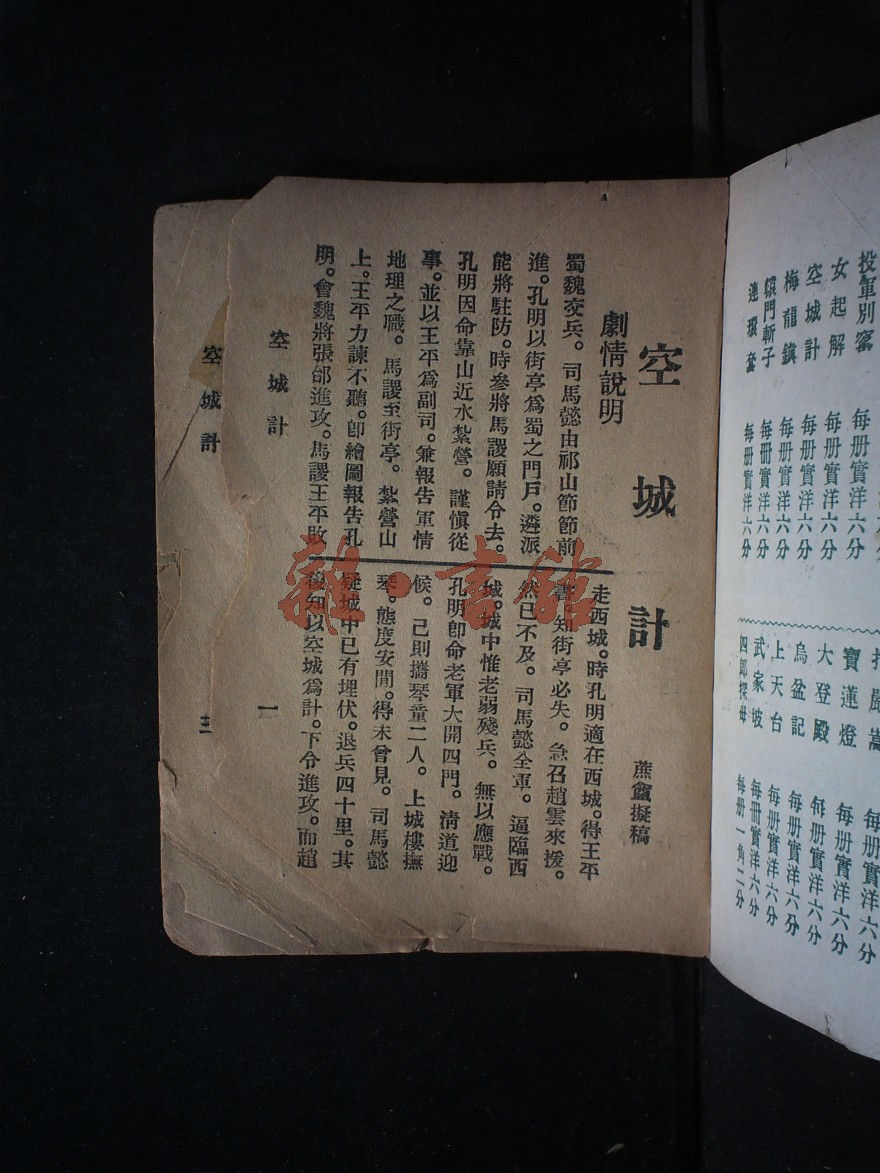 空城計
蕉盦擬稿
劇情說明
蜀魏交兵。司馬懿由祁山節節前
進。孔明以街亭爲蜀之門戶。遴派
能將駐防。時參將馬謖願請令去。
孔明因命靠山近水紮營。謹愼從
事。並以王平爲副司。兼報告軍情
地理之職。馬謖至街亭。紮營山
上。王平力諫不聽。卽繪圖報告孔
明。會魏將張郃進攻。馬謖王平敗
走西城。時孔明適在西城。得王平
書。知街亭必失。急召趙雲來援。
然已不及。司馬懿全軍。逼臨西
城。城中惟老弱殘兵。無以應戰。
孔明卽命老軍大開四門。淸道迎
候。己則攜琴童二人。上城樓撫
琴。態度安閒。得未曾見。司馬懿
疑城中已有埋伏。退兵四十里。其
後知以空城爲計。下令進攻。而趙
空城計
一
空城計
三
雜·書館
投軍別窰 每册實洋六分
女起解 每册實洋六分
空城計 每册實洋六分
梅龍鎮 每册實洋六分
轅門斬子 每册實洋六分
連環套 每册實洋六分
打嚴嵩 每册實洋六分
寶蓮燈 每册實洋六分
大登殿 每册實洋六分
烏盆記 每册實洋六分
上天台 每册實洋六分
武家坡 每册實洋六分
四郎探母 每册一角二分